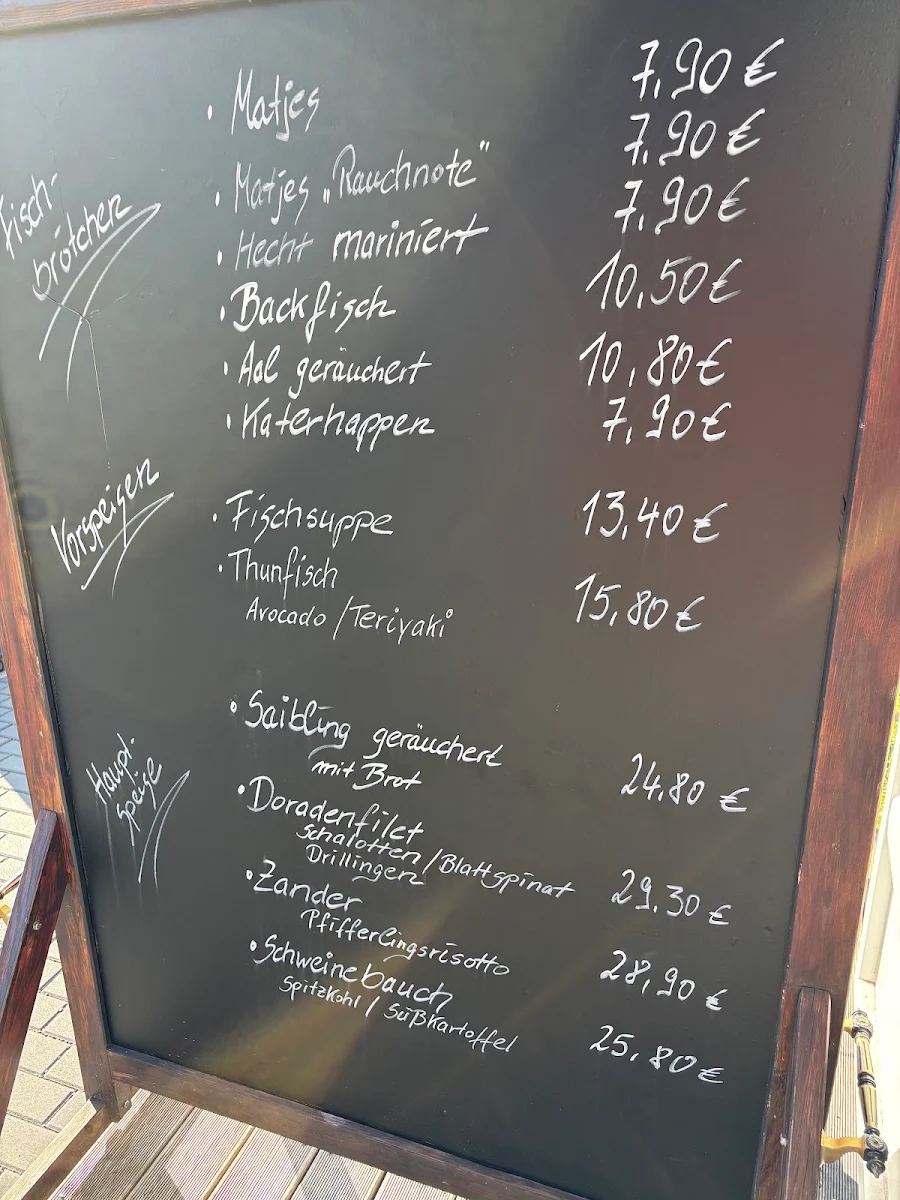 Fisch-
brötchen
· Matjes 7,90 €
· Matjes „Rauchnote" 7,90 €
· Hecht mariniert 7,90 €
· Backfisch 10,50 €
· Aal geräuchert 10,80 €
· Katerhappen 7,90 €
Vorspeisen
· Fischsuppe 13,40 €
· Thunfisch
Avocado / Teriyaki 15,80 €
Haupt-
speise
· Saibling geräuchert
mit Brot 24,80 €
· Doradenfilet
Schalotten / Blattspinat
Drillingen 29,30 €
· Zander
Pfifferlingsrisotto 28,90 €
· Schweinebauch
Spitzkohl / Süßkartoffel 25,80 €